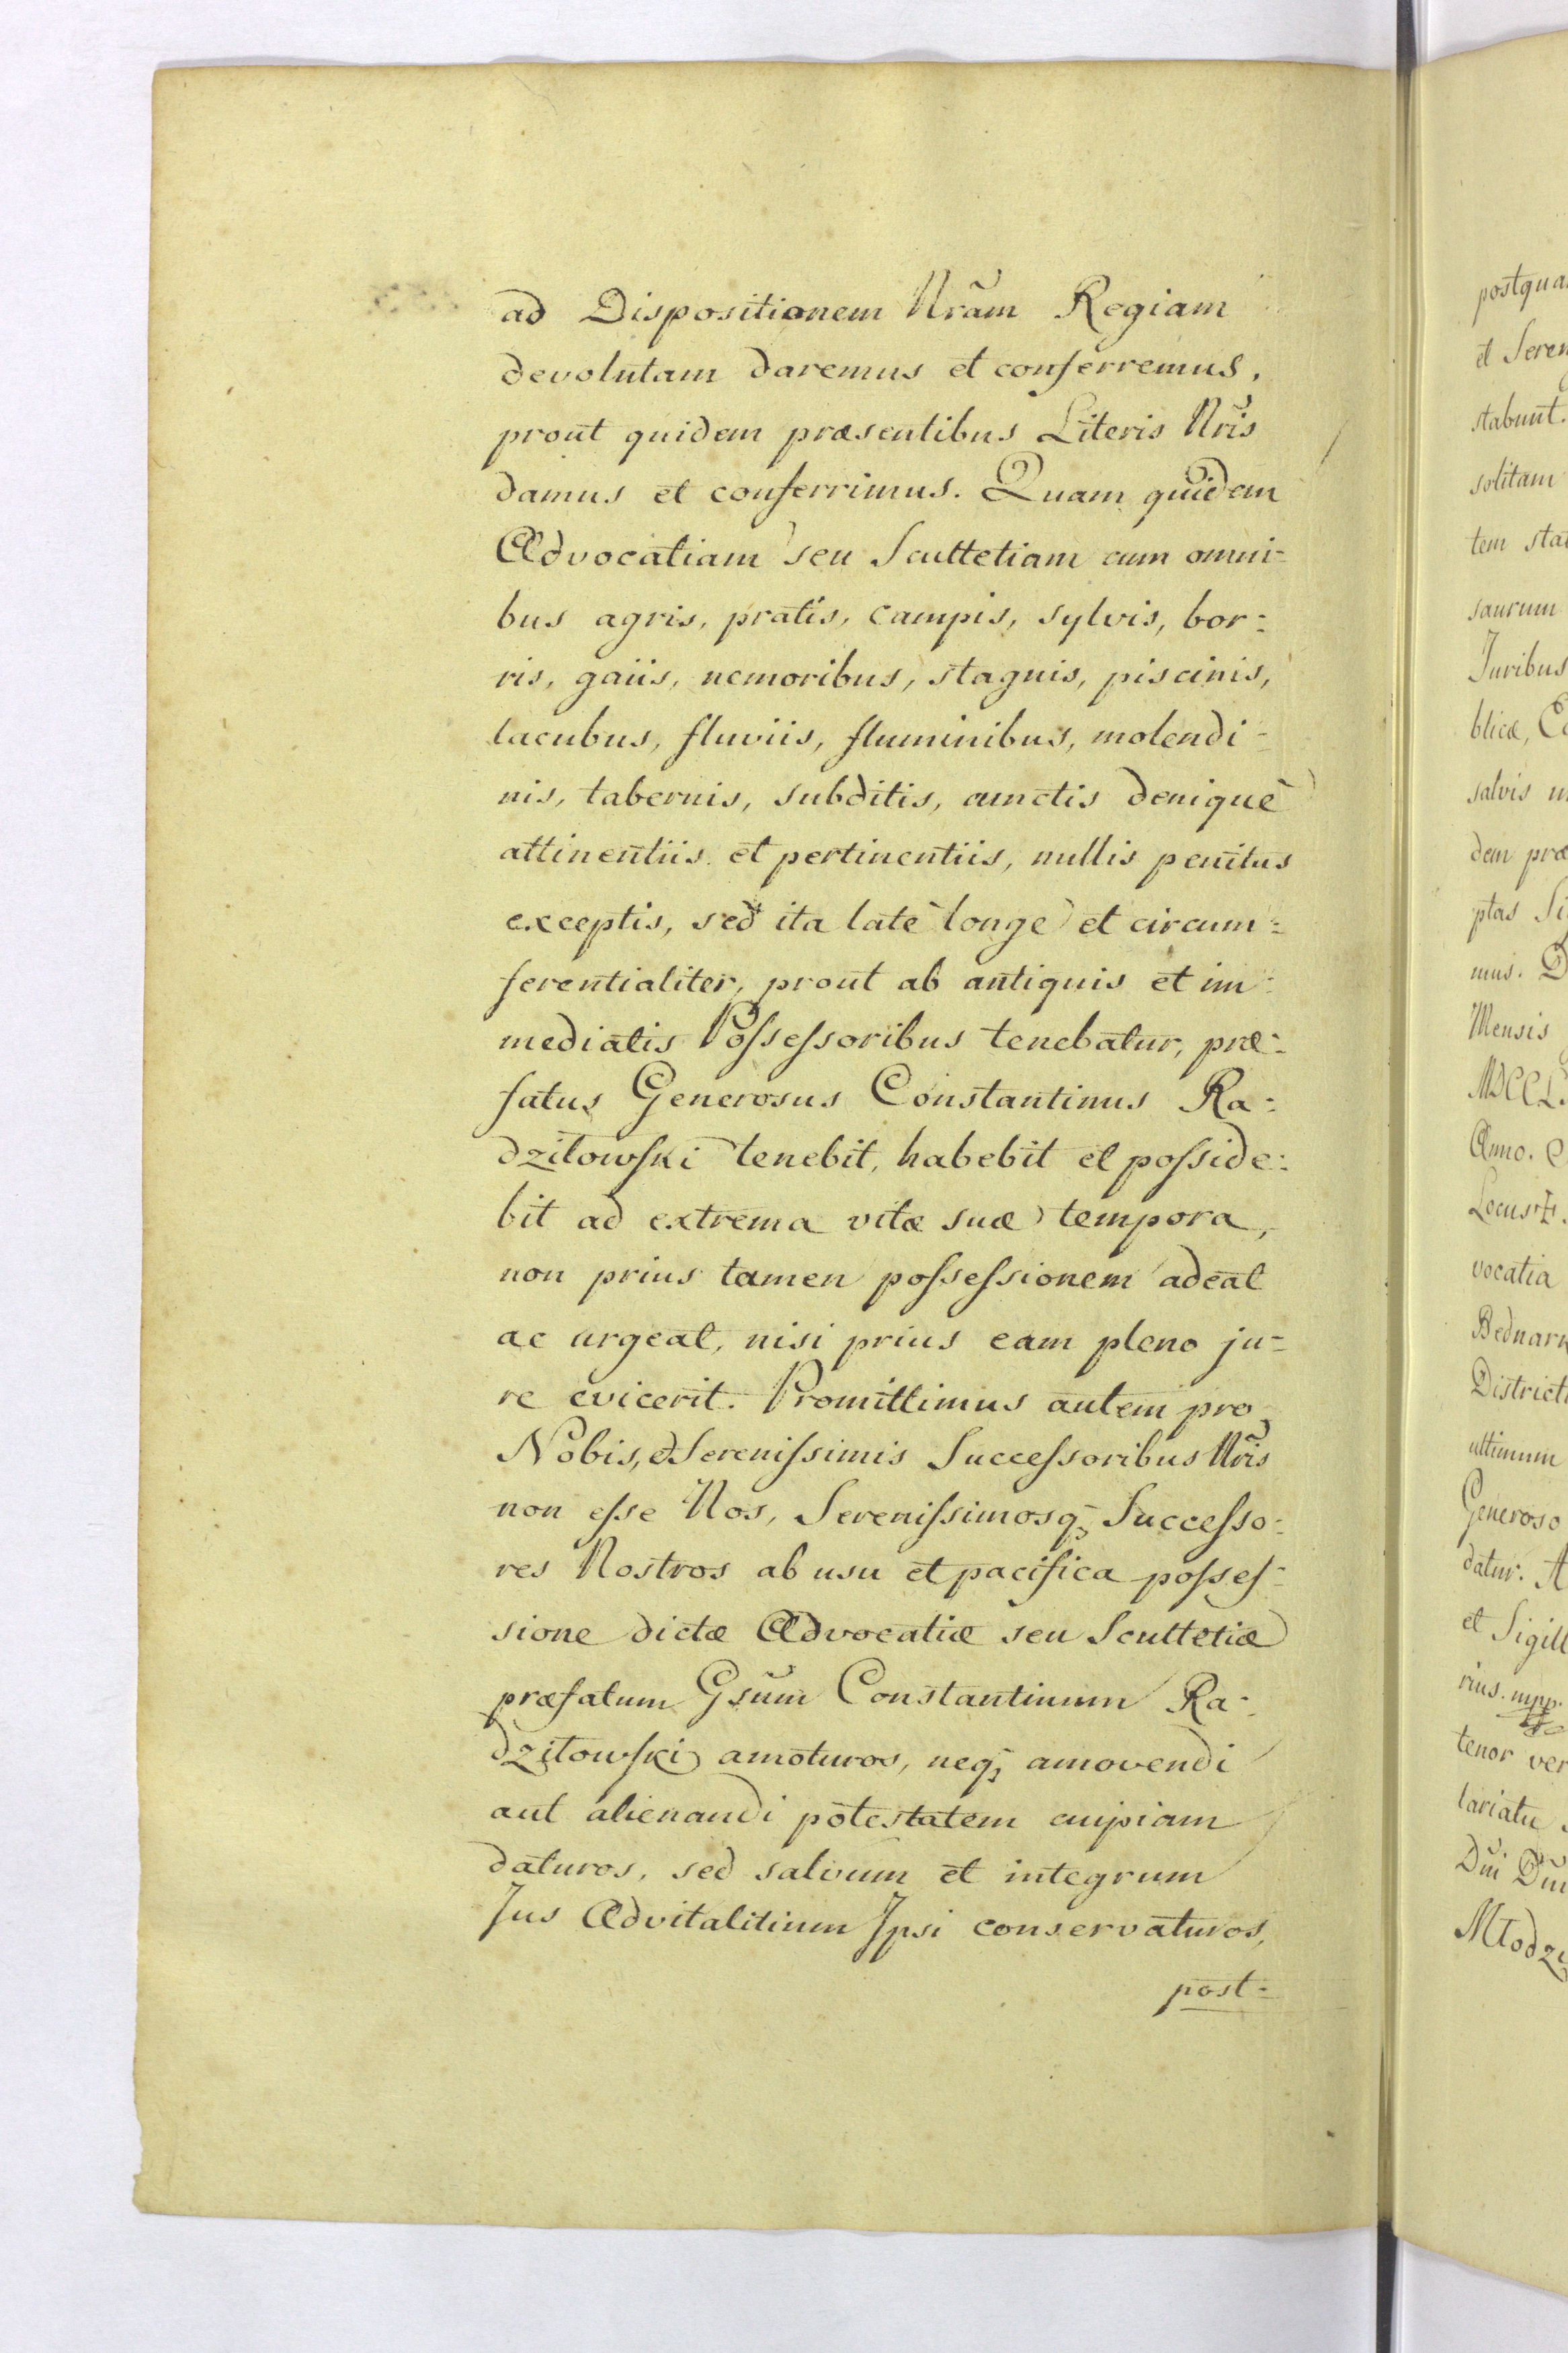 ad Dispositionem Nram̃ Regiam
devolutam daremus et conferremus,
prout quidem præsentibus Literis Nris̃
damus et conferrimus. Quam quidem
Advocatiam seu Scultetiam cum omni=
bus agris, pratis, campis, sylvis, bor=
ris, gaiis, nemoribus, stagnis, piscinis,
lacubus, fluviis, fluminibus, molendi=
nis, tabernis, subditis, cunctis denique
attinentiis et pertinentiis, nullis penitus
exceptis, sed ita latè longè et circum=
ferentialiter, prout ab antiquis et im=
mediatis Possessoribus tenebatur, præ=
fatus Generosus Constantinus Ra=
dziłowski tenebit, habebit et posside=
bit ad extrema vitæ suæ tempora,
non prius tamen possessionem adeat
ac urgeat, nisi prius eam pleno ju=
re evicerit. Promittimus autem pro
Nobis, et Serenissimis Successoribus Nris̃
non esse Nos, Serenissimosq; Successo=
res Nostros ab usu et pacifica posses=
sione dictæ Advocatiæ seu Scultetiæ
præfatum Gsum̃ Constantinum Ra=
dziłowski amoturos, neq; amovendi
aut alienandi potestatem cuipiam
daturos, sed salvum et integrum
Jus Advitalitium Ipsi conservaturos,
post=
et Seren
stabunt.
solitam
tem sta
saurum
Juribus
blicæ,
salvis
dem præ
ptas Si
mus. D
Mensis
MDCCL
Anno.
Locus
vocatia
Bednark
District
ultimum
Generoso
datur. A
et Sigill
rius. mpp.
tenor ver
lariatu
Młodzi